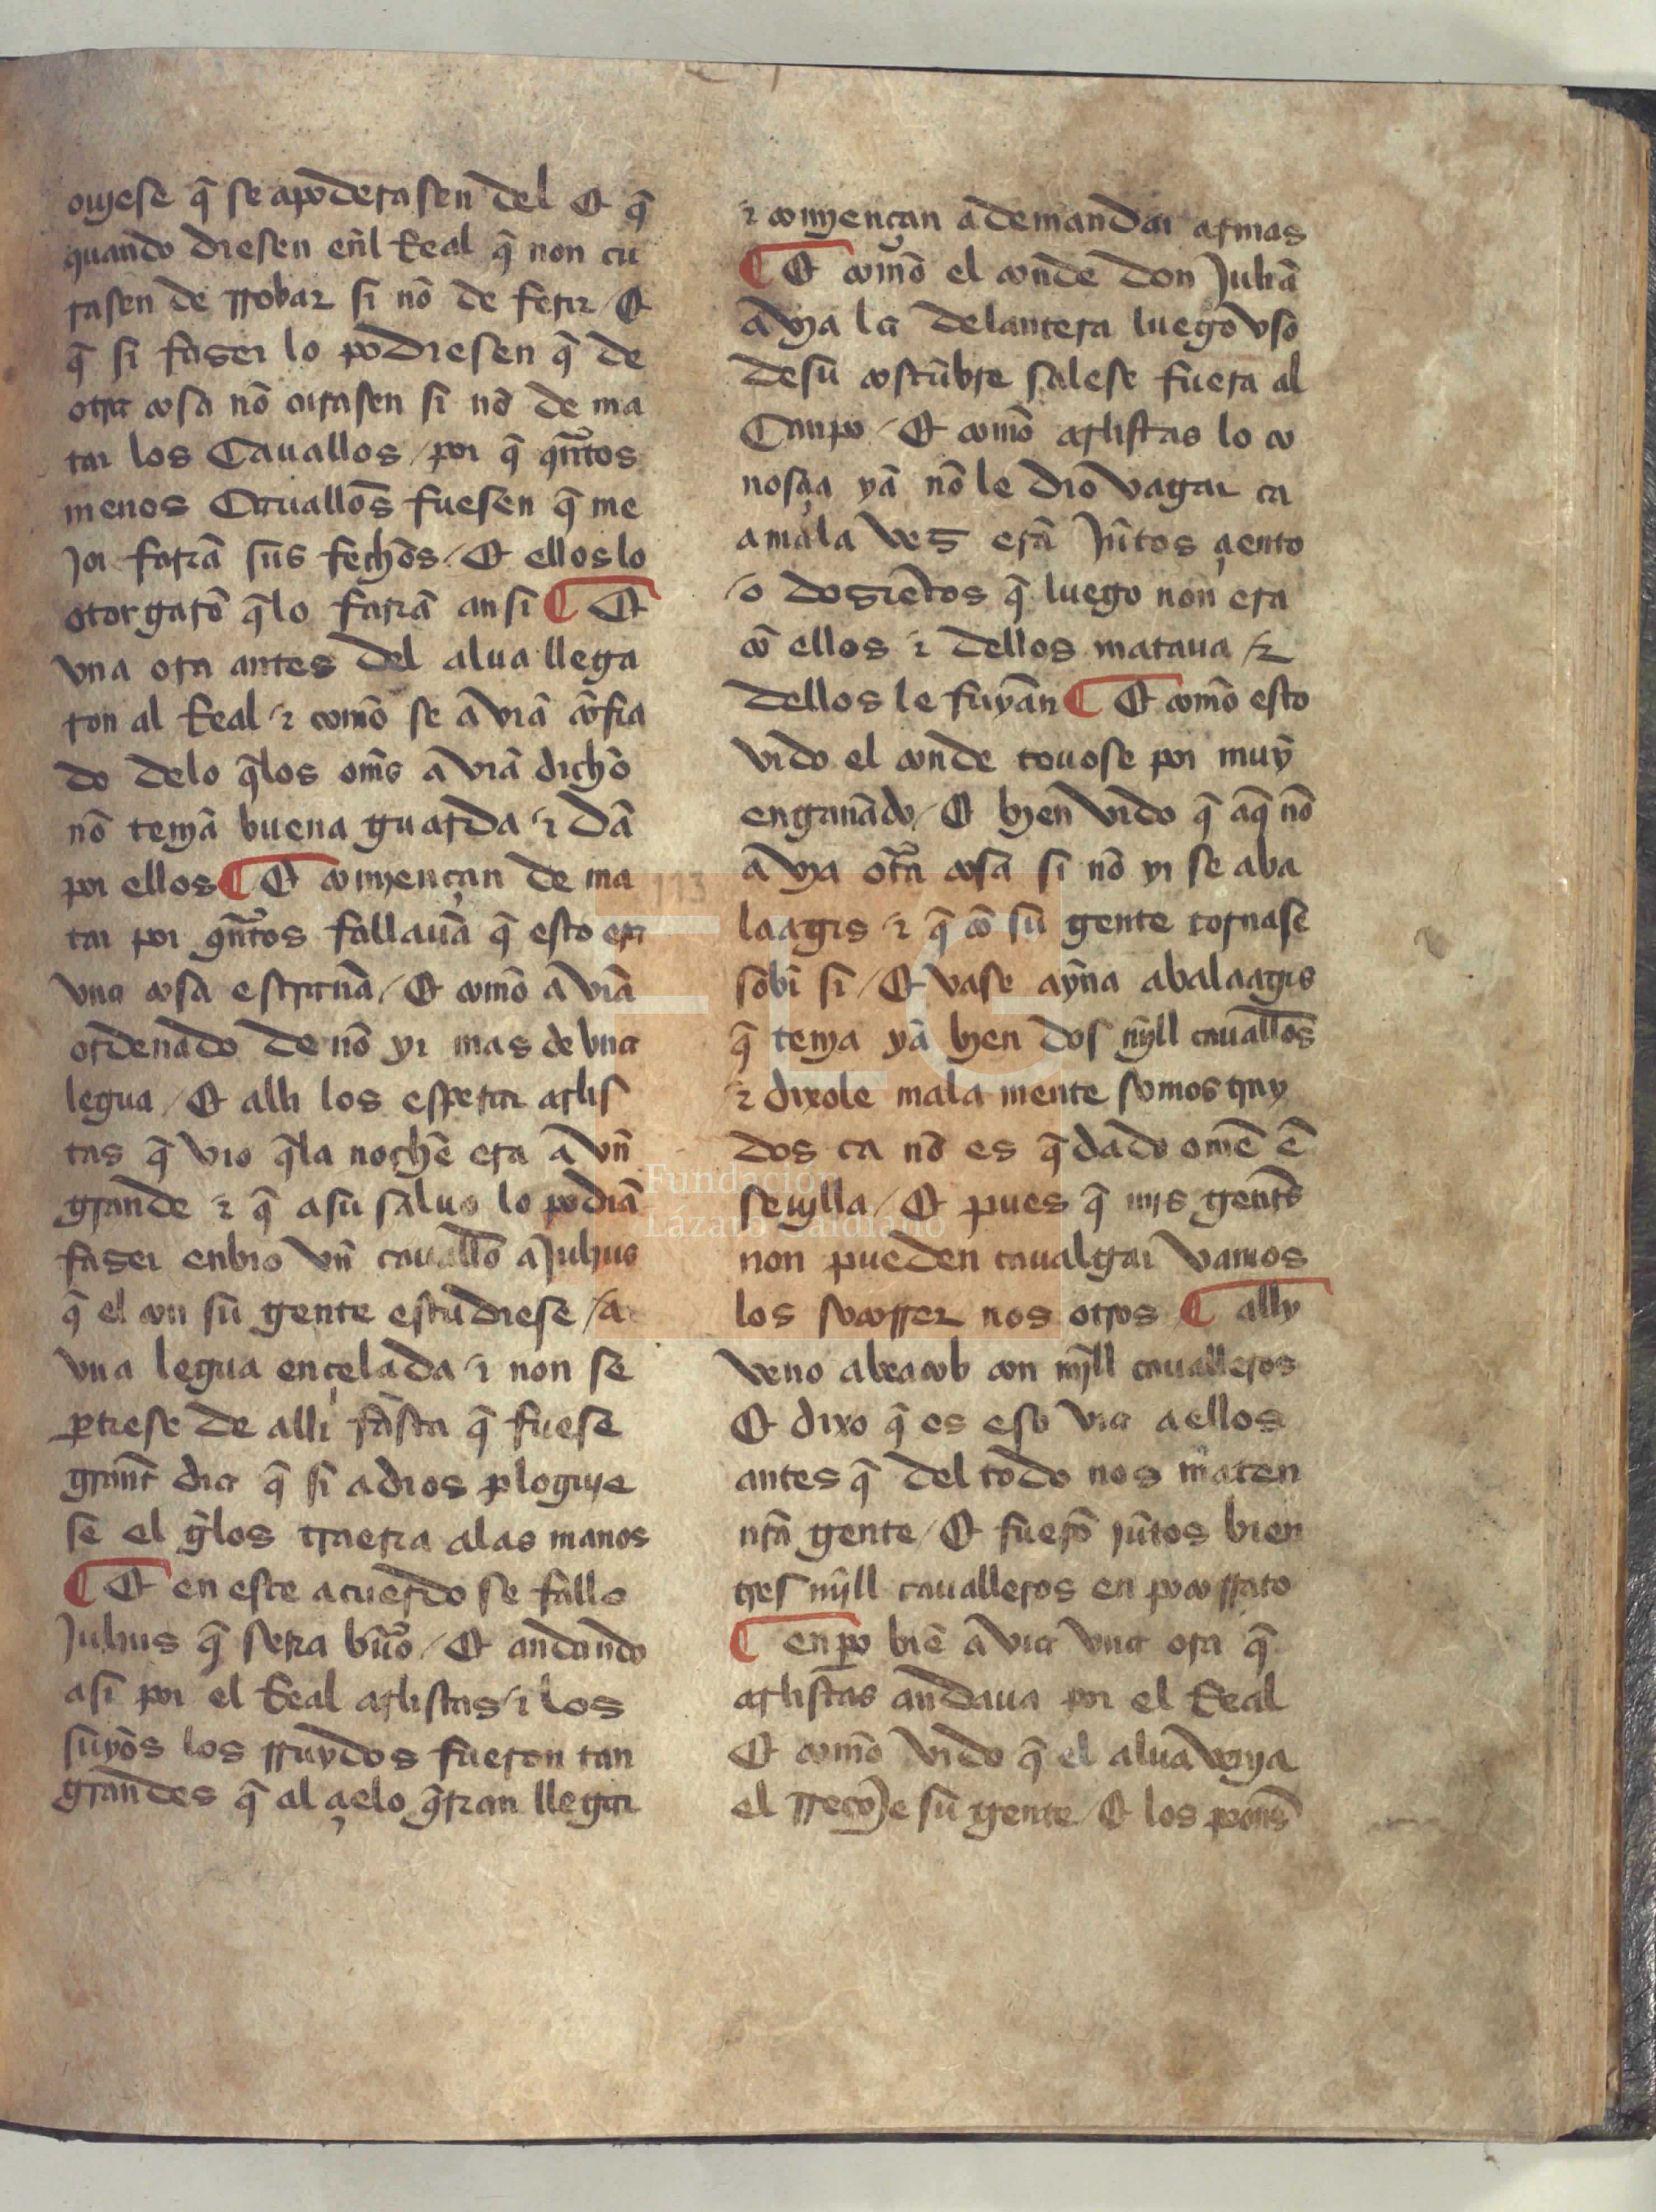 oujese q̃ se apoderasen del Et q̃
quando diesen eñl Real q̃ non cu
rasen de rrobar si nõ de ferir / Et
q̃ si faser lo podiesen q̃ de
otra cosa nõ curasen si nõ de ma
tar los Cauallos / por q̃ q̃ntos
menos Cauallos fuesen q̃ me
jor fariã sus fechos / Et ellos lo
otorgarõ q̃ lo fariã ansi ¶ Et
vna ora antes del alua llega
ron al Real ⁊ comõ se aviã cõfia
do delo q̃ los om̃s aviã dicho
nõ tenjã buena guarda ⁊ dã
por ellos ¶ Et comjençan de ma
tar por q̃ntos fallauã q̃ esto era
vna cosa estraña / Et comõ aviã
ordenado de nõ yr mas de vna
legua / Et alli los esperar arlis
tas q̃ vio q̃ la noche era avñ
grande ⁊ q̃ a su saluo lo podiã
faser enbio vñ cauallo a Julius
q̃ el con su gente estudiese / a
vna legua ençelada ⁊ non se
partiese de alli fasta q̃ fuese
grant dia q̃ si a dios plogujе
se el g̃los traeria alas manos
¶ Et en este acuerdo se fallo
Julius q̃ sera bũo / Et andando
asi por el Real arlistas ⁊ los
suyos los rruydos fueron tan
grandes q̃ al çielo q̃rian llegar
⁊ comjençan a demandar armas
¶ Et comõ el conde don Juliã
avja la delantera luego vso
de su costũbre salese fuera al
Canpo / Et comõ arlistas lo co
nosçia yã nõ le dio vagar ca
amala ves erã Jũtos çiento
/ o dosientos q̃ luego non era
cõ ellos ⁊ dellos mataua / ⁊
dellos le fuyãn ¶ Et comõ esto
vido el conde touose por muy
engañado / Et bjen vido q̃ aq̃ nõ
avja otra cosa si nõ yr se aba
laagis ⁊ q̃ cõ su gente tornase
sobr̃ si / Et vase ayna abalaagis
q̃ tenja yã bjen dos mjll cauallos
⁊ dixole mala mente somos tray
dos ca nõ es q̃dado omẽ ẽ
seujlla / Et pues q̃ mjs gent̃s
non pueden caualgar vamos
los socorrer nos otros ¶ ally
veno abracob con mjll caualleros
Et dixo q̃ es eso via a ellos
antes q̃ del todo nos maten
nr̃a gente / Et fuerõ jũtos bien
tres mjll caualleros en poco rrato
¶ enpo biẽ avia vna ora q̃
arlistas andaua por el Real
Et comõ vido q̃ el alua venja
el rrecoje su gente / Et los pon̄s
Fundación
Lázaro Galdiano